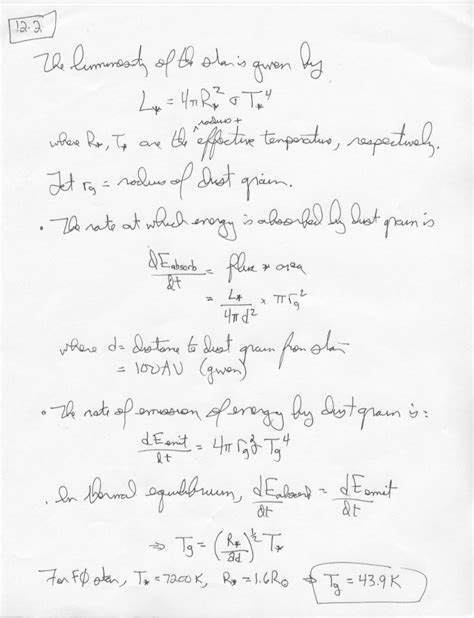 12.2
The luminosity of the star is given by
L* = 4πR*² σ T*⁴
radius +
where R*, T* are the effective temperature, respectively.
Let rg = radius of dust grain.
• The rate at which energy is absorbed by dust grain is
dEabsorb/dt = flux * area
= L*/4πd² × πrg²
where d = distance to dust grain from star
= 100AU (given)
• The rate of emission of energy by dust grain is:
dEemit/dt = 4π rg² Tg⁴
• In thermal equilibrium, dEabsorb/dt = dEemit/dt
⇒ Tg = (R*/2d)^½ T*
For F0 star, T* = 7200K, R* = 1.6R⊙ ⇒ Tg = 43.9K